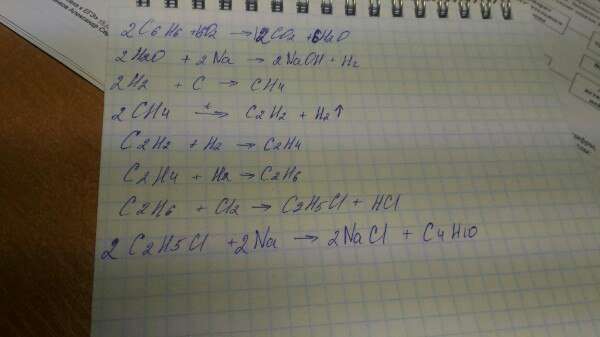 2C6H6 + O2 → 12CO2 + 6H2O
2H2O + 2Na → 2NaOH + H2
2H2 + C → CH4
2CH4 —t→ C2H2 + H2↑
C2H2 + H2 → C2H4
C2H4 + H2 → C2H6
C2H6 + Cl2 → C2H5Cl + HCl
2C2H5Cl + 2Na → 2NaCl + C4H10